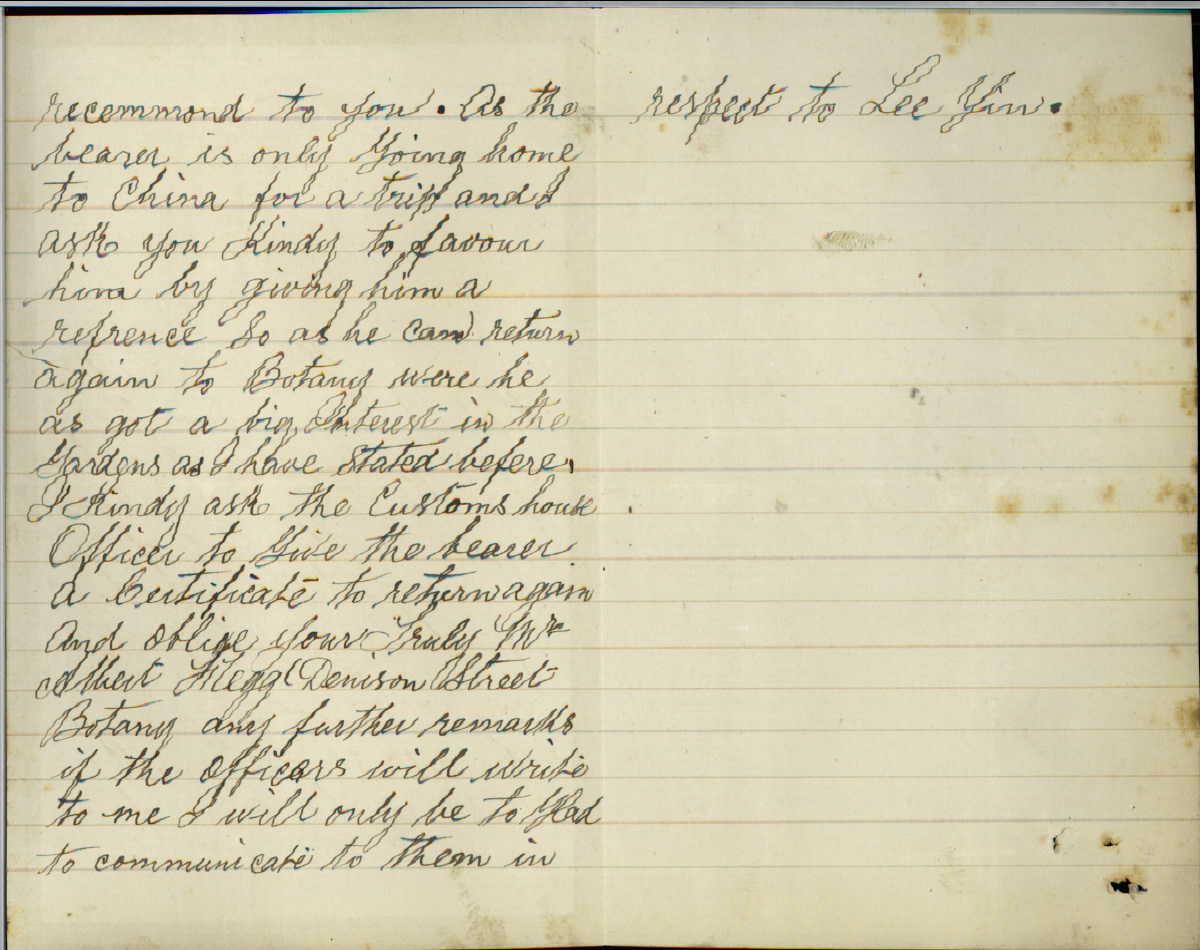 recommond to you. As the
bearer is only Going home
to China for a tripp and I
ask you Kindy to favour
him by giving him a
refrence so as he can return
again to Botany were he
as got a big Interest in the
Gardens as I have stated before.
I Kindy ask the Customs house
Officer to Give the bearer
a Certificate to return again
And oblige your Truly Mr
Albert Denison Street
Botany any further remarks
if the officers will write
to me I will only be to Glad
to communicate to them in
respect to Lee Yin.